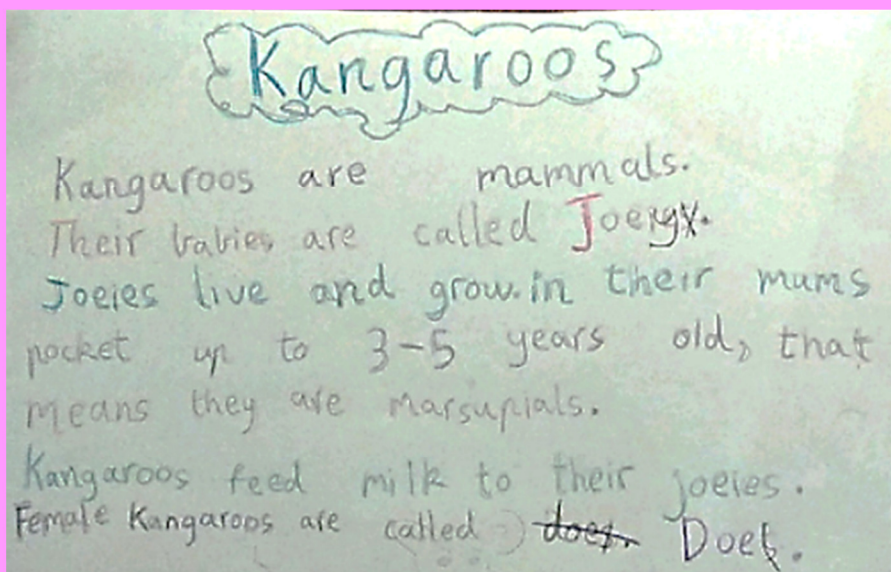 Kangaroos
Kangaroos are mammals.
Their babies are called
Joeies live and grow.in their mums
pocket up to 3-5 years old, that
means they are marsupials.
Kangaroos feed milk to their joeies.
Female Kangaroos are called does. Does.